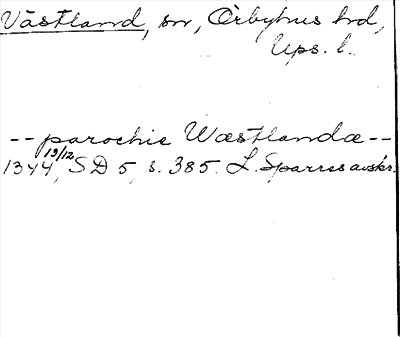 Västland, sn, Örbyhus hd,
Ups. l.
-- parochie Wæstlanda --
1344 19/12, SD 5, s. 385. L. Sparres avskr.